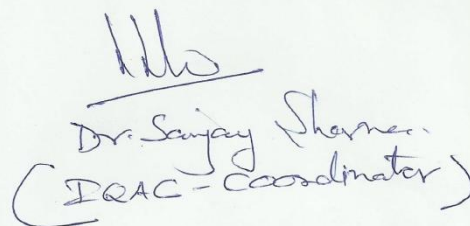 Dr. Sanjay Sharma.
(IQAC - Coordinator)